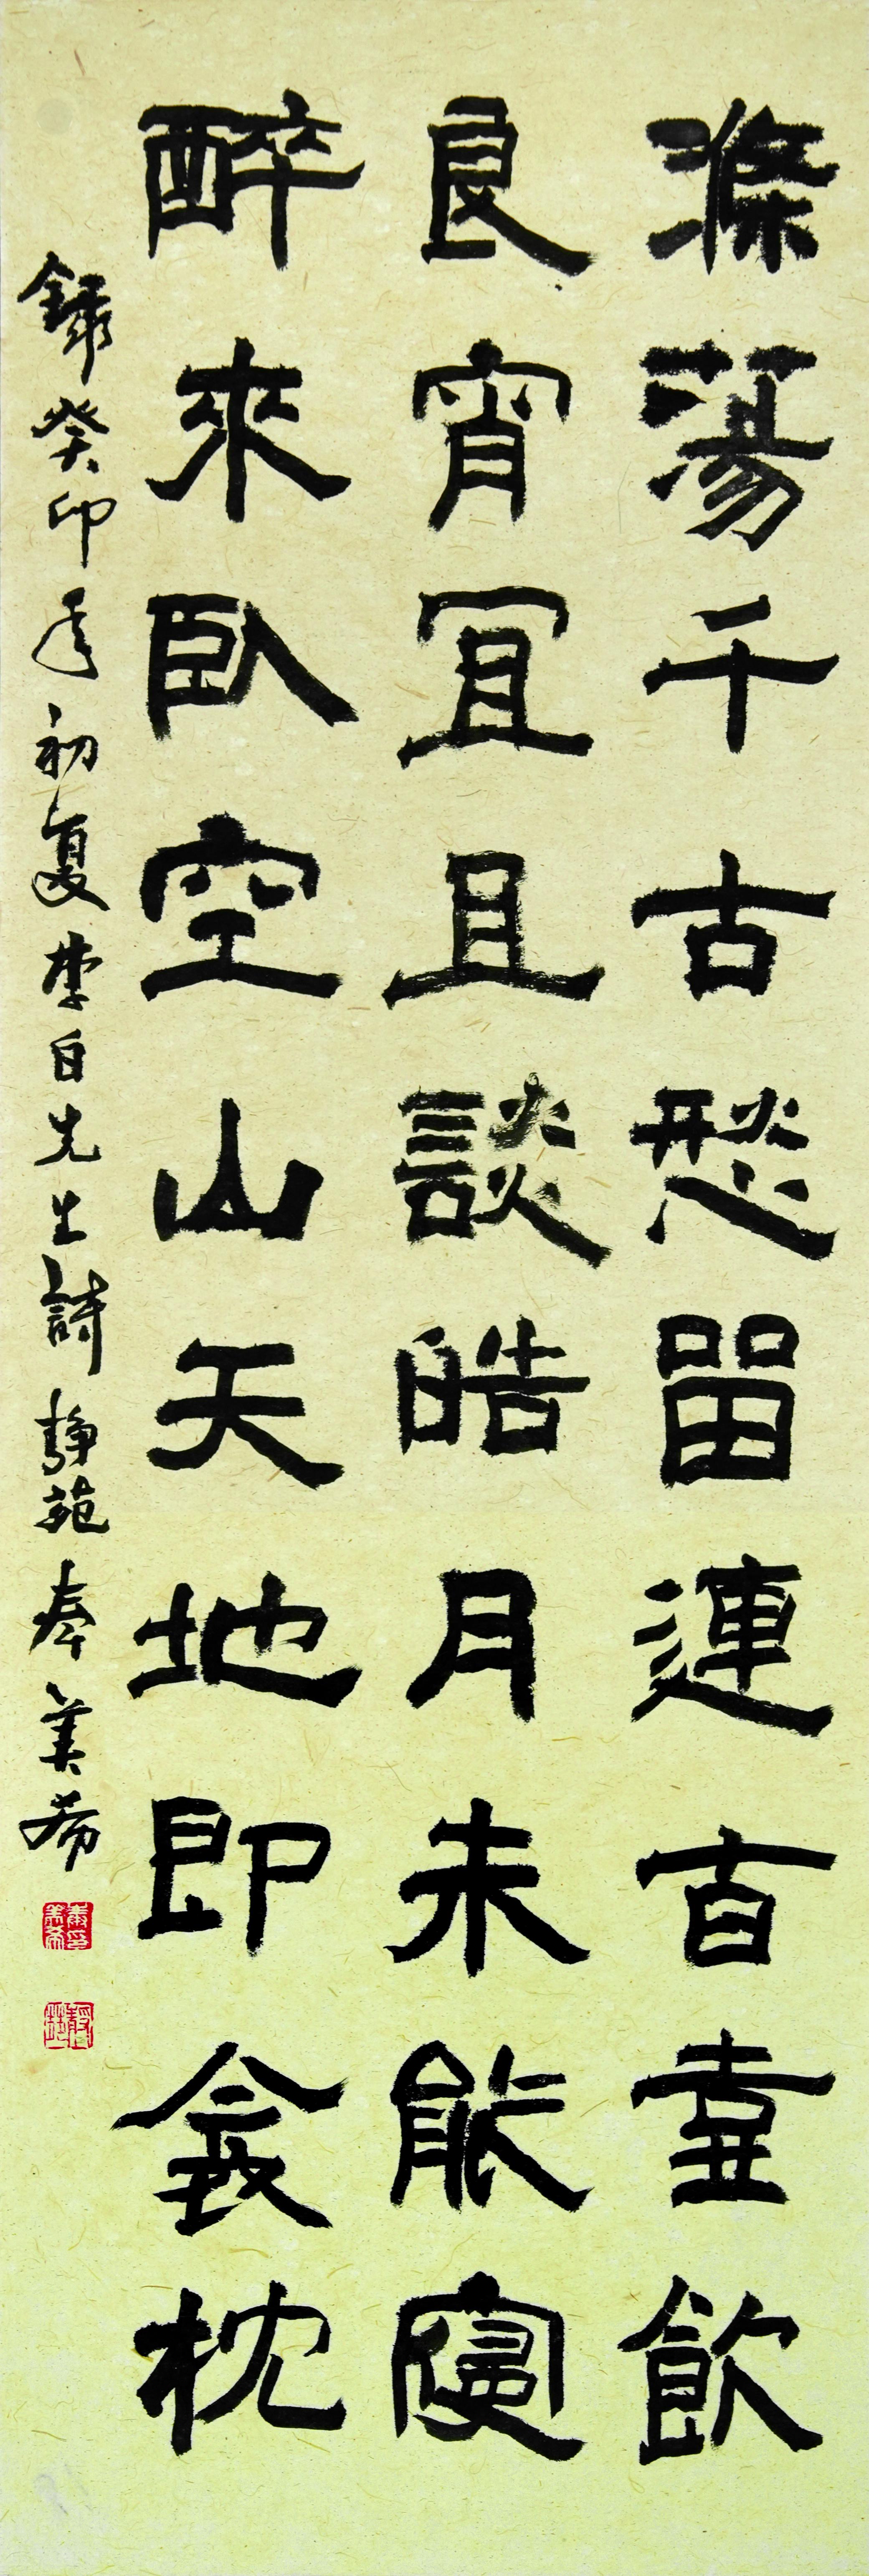 滌蕩千古愁留連百壺飲
良宵宜且談皓月未能寢
醉來臥空山天地即衾枕
錄癸卯年初夏李白先生詩靜苑秦美希